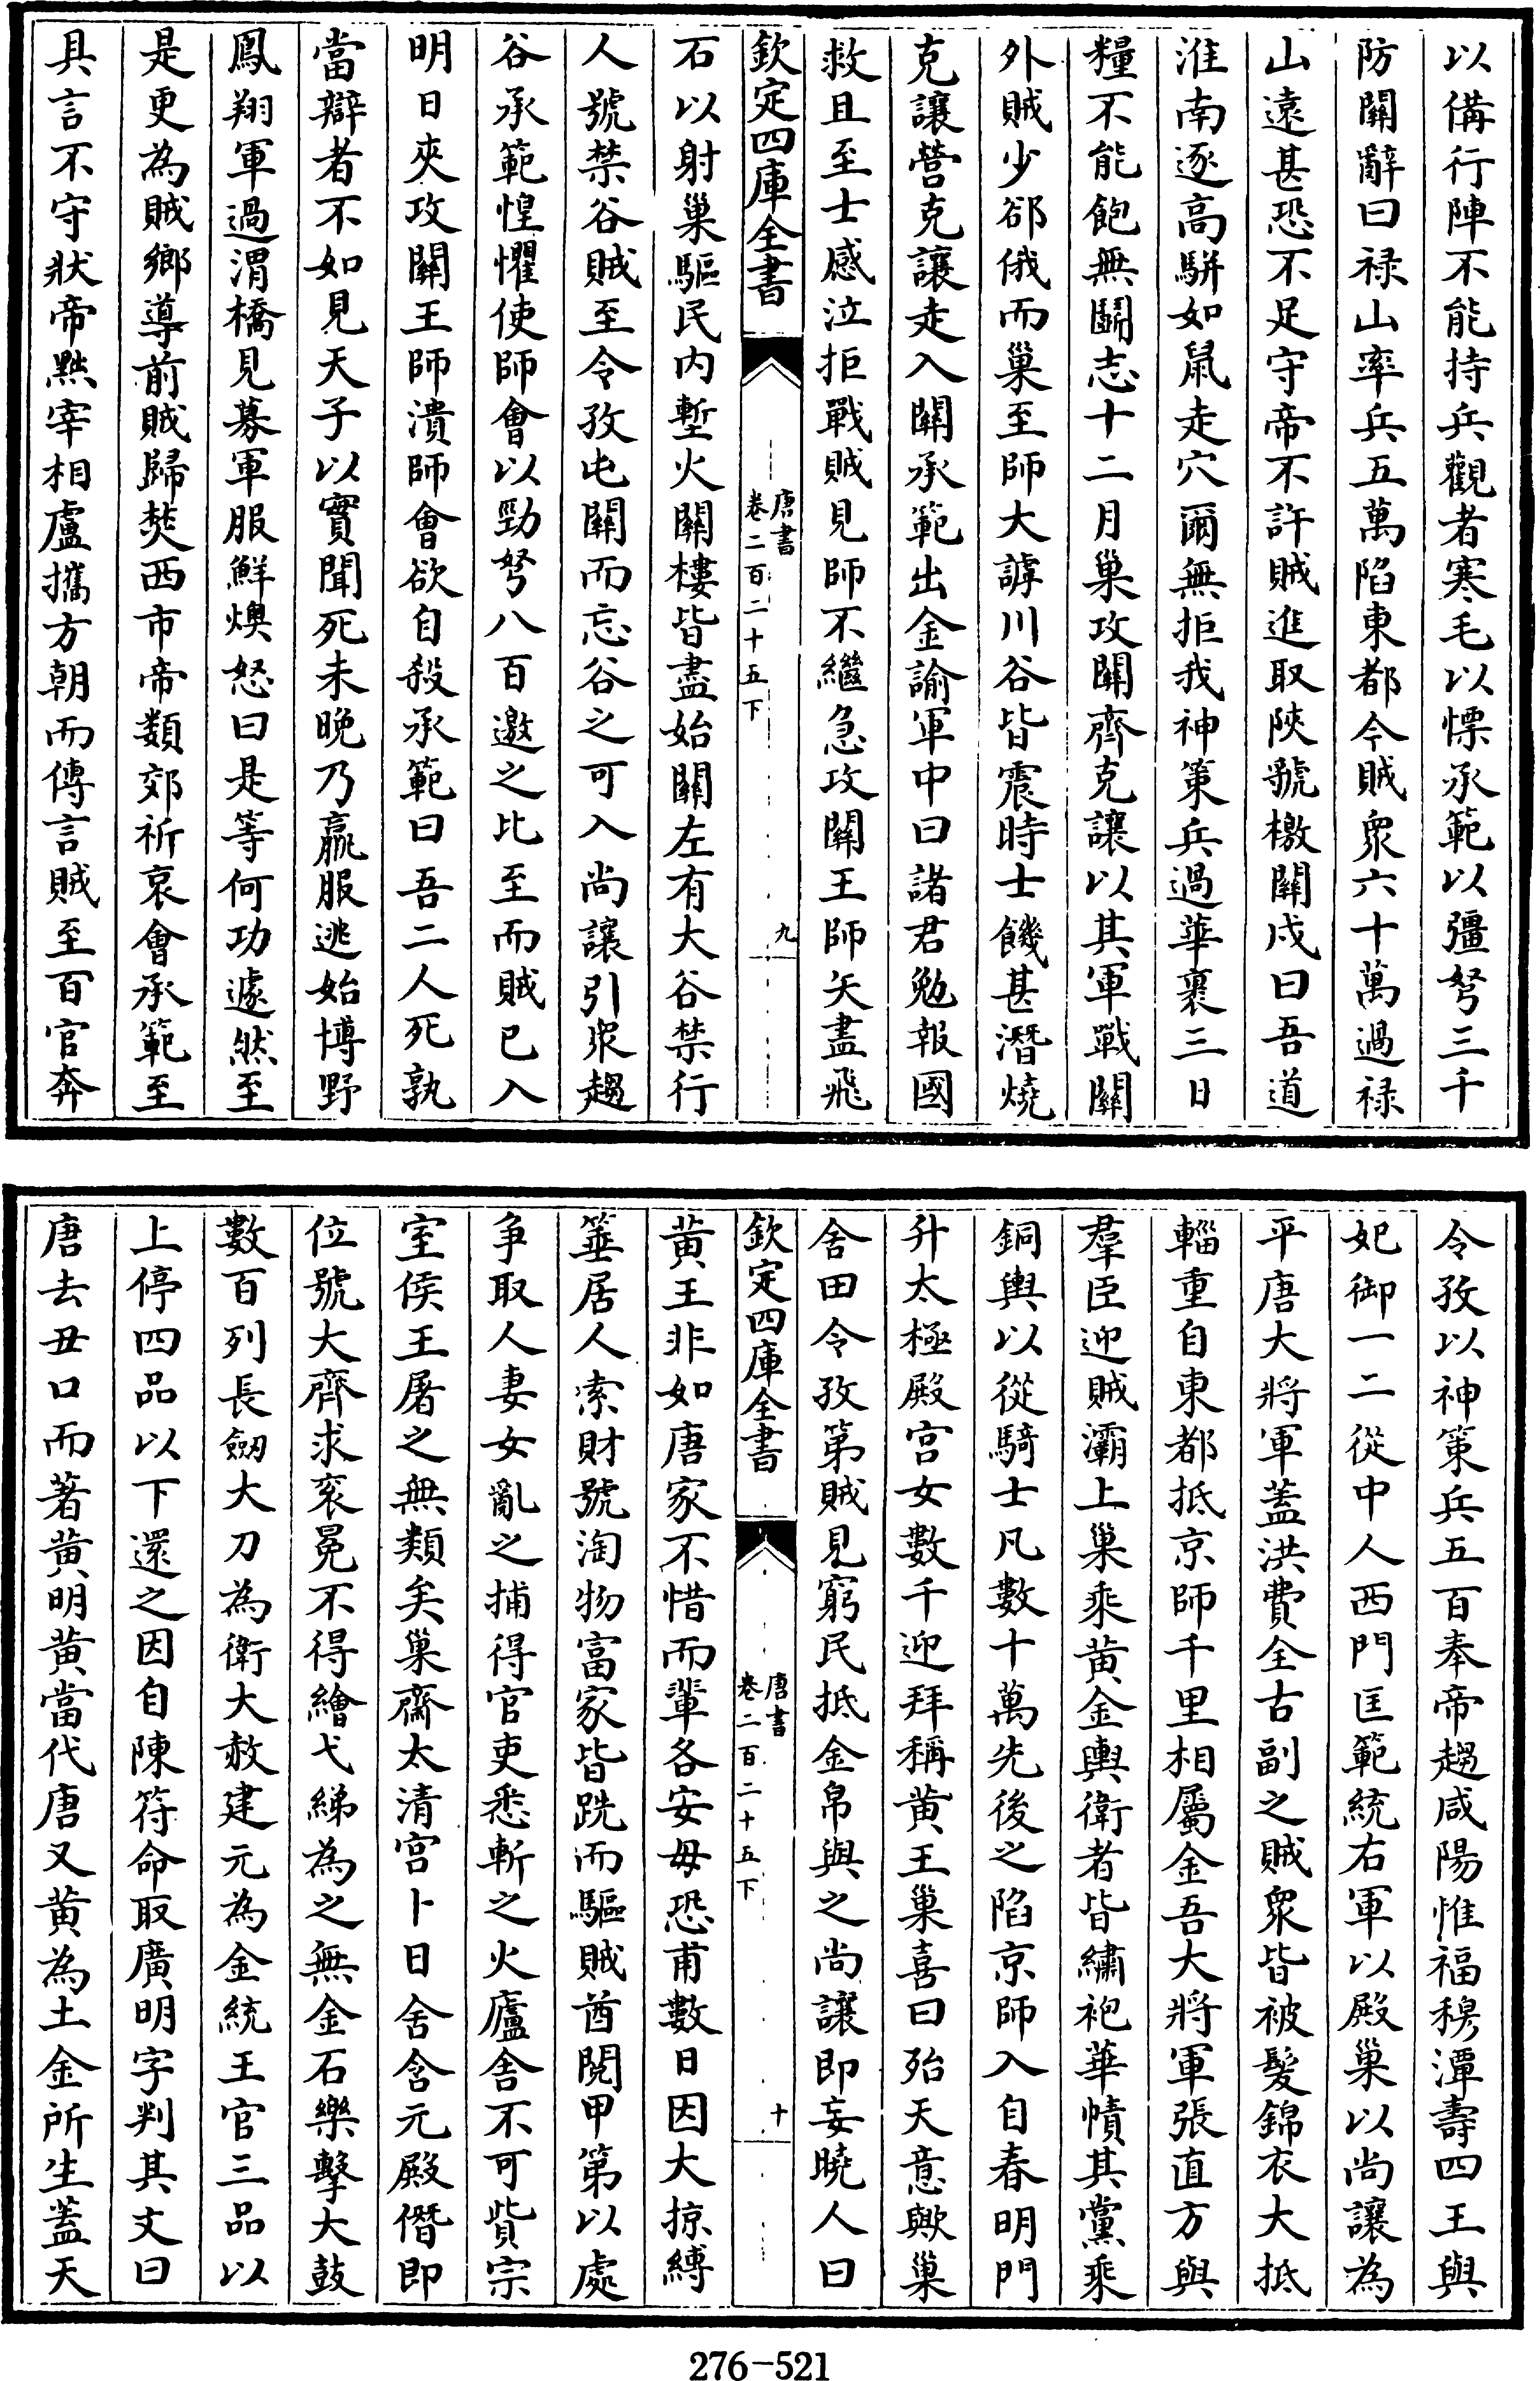 以備行陣不能持兵觀者寒毛以慄承範以彊弩三千
防關辭曰禄山率兵五萬陷東都今賊衆六十萬過禄
山遠甚恐不足守帝不許賊進取陜虢檄關戍曰吾道
淮南逐高駢如鼠走穴爾無拒我神策兵過華裹三日
糧不能飽無鬬志十二月巢攻關齊克讓以其軍戰關
外賊少郤俄而巢至師大謼川谷皆震時士饑甚潛燒
克讓營克讓走入關承範出金諭軍中曰諸君勉報國
救且至士感泣拒戰賊見師不繼急攻關王師矢盡飛
欽定四庫全書
唐書
卷二百二十五下
九
石以射巢驅民内塹火關樓皆盡始關左有大谷禁行
人號禁谷賊至令孜屯關而忘谷之可入尚讓引衆趨
谷承範惶懼使師會以勁弩八百邀之比至而賊已入
明日夾攻關王師潰師會欲自殺承範曰吾二人死孰
當辯者不如見天子以實聞死未晚乃羸服逃始博野
鳳翔軍過渭橋見募軍服鮮燠怒曰是等何功遽然至
是更為賊鄉導前賊歸焚西市帝類郊祈哀會承範至
具言不守狀帝黜宰相盧攜方朝而傳言賊至百官奔
令孜以神策兵五百奉帝趨咸陽惟福穆潭壽四王與
妃御一二從中人西門匡範統右軍以殿巢以尚讓為
平唐大將軍蓋洪費全古副之賊衆皆被髮錦衣大抵
輜重自東都抵京師千里相屬金吾大將軍張直方與
羣臣迎賊灞上巢乘黄金輿衛者皆繡袍華幘其黨乘
銅輿以從騎士凡數十萬先後之陷京師入自春明門
升太極殿宫女數千迎拜稱黄王巢喜曰殆天意歟巢
舍田令孜第賊見窮民抵金帛與之尚讓即妄曉人曰
欽定四庫全書
唐書
卷二百二十五下
十
黄王非如唐家不惜而輩各安毋恐甫數日因大掠縛
箠居人索財號淘物富家皆跣而驅賊酋閲甲第以處
爭取人妻女亂之捕得官吏悉斬之火廬舍不可貲宗
室侯王屠之無類矣巢齋太清宫卜日舍含元殿僭即
位號大齊求衮冕不得繪弋綈為之無金石樂擊大鼓
數百列長劔大刀為衛大赦建元為金統王官三品以
上停四品以下還之因自陳符命取廣明字判其文曰
唐去丑口而著黄明黄當代唐又黄為土金所生蓋天
276-521